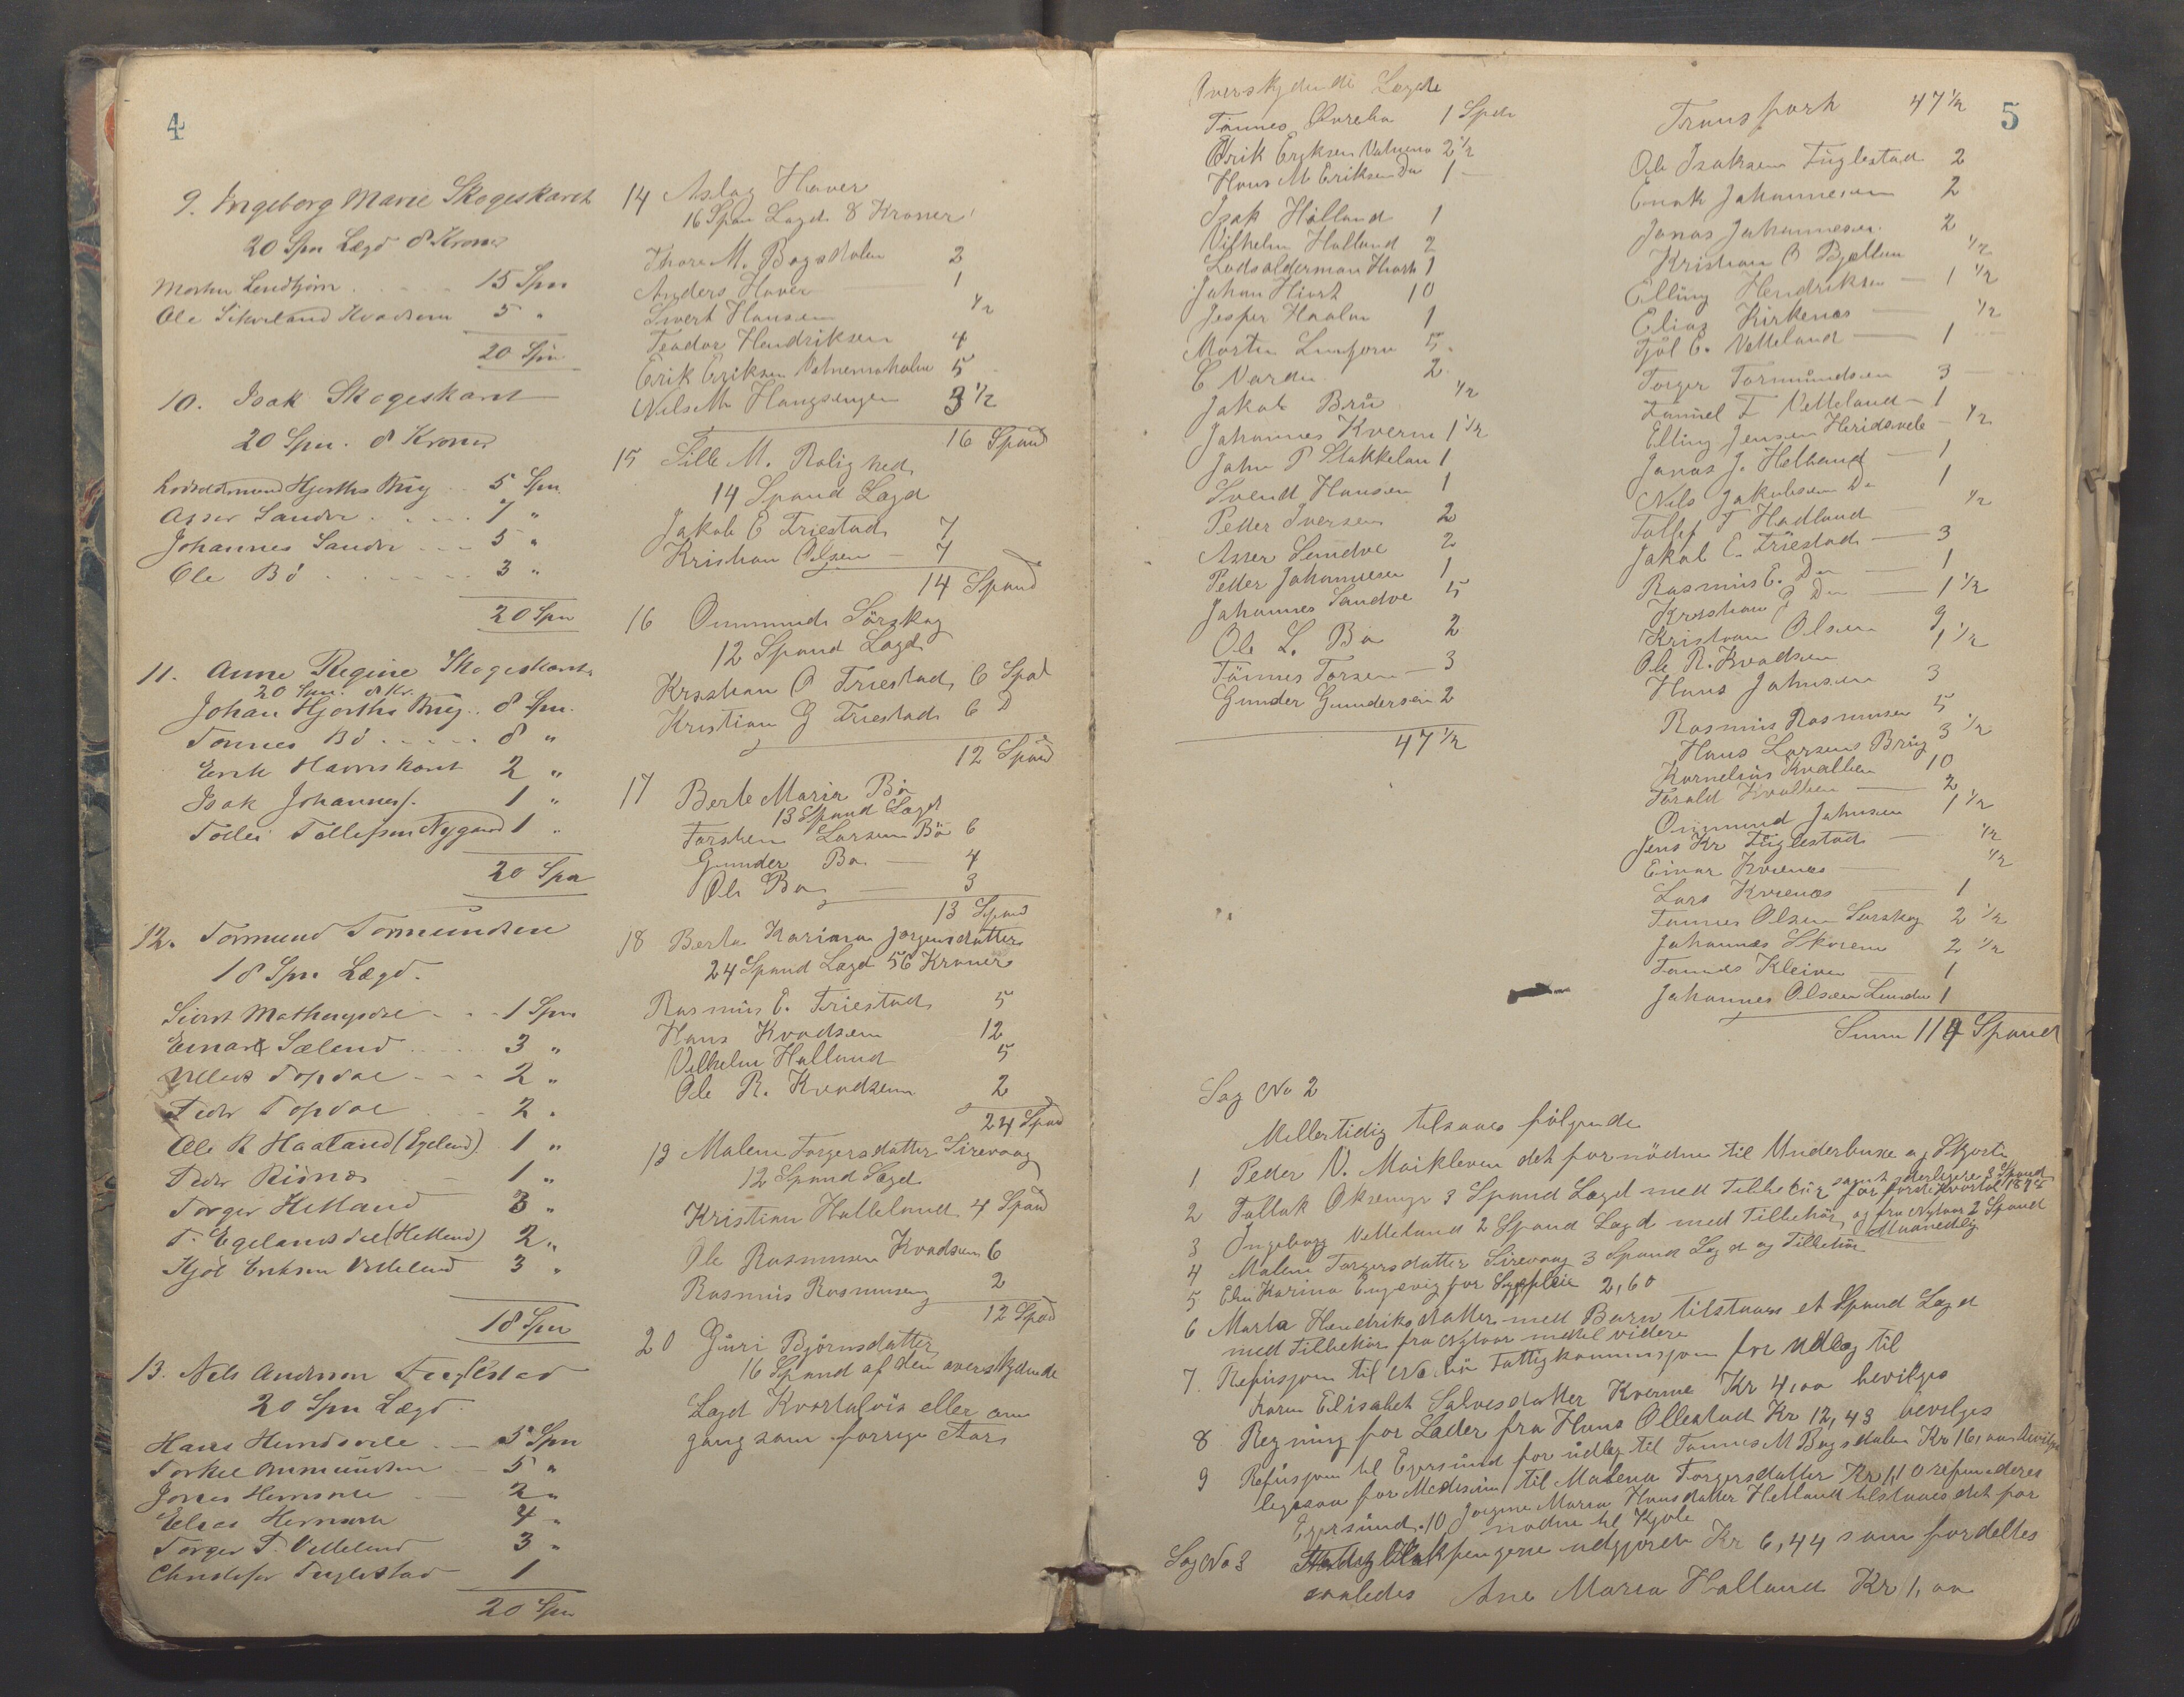 4
9. Ingeborg Marie Skogeskaret
20 Spn Lægd 8 Kroner
Morten Lendtjørn 15 Spn
Ole Sikveland Kvadsem 5 "
20 Spn
10. Isak Skogeskaret
20 Spn. 8 Kroner
Lodsoldermand Hjorths Brug 5 Spn
Asser Sandve 7 "
Johannes Sandve 5 "
Ole Bö 3 "
20 Spn
11. Anne Regine Skogeskaret
20 Spn. 8 Kr.
Johan Hjorths Brug 8 Spn.
Tönnes Bö 8 "
Erik Havreskaret 2 "
Isak Johannes. 1 "
Tollei Tollefsen Nygaard 1 "
20 Spn
12. Tormund Tormundsen
18 Spn Lægd.
Sivert Mathingsdal 1 Spn
Einar Sæland 3 "
Topdal 2 "
Peder Topdal 2 "
Ole R Haaland (Egeland) 1 "
Peder Risnes 1 "
Torger Hetland 3 "
T. Egelandsdal (Hetland) 2 "
Kjöl Eriksen Vetteland 3 "
18 Spn
13. Nels Andersen Fuglestad
20 Spn Lægd
Hans Herredsvele 5 Spn
Torkel Ommundsen 5 "
Jonas 2 "
Elias 4 "
Torger T. Vetteland 3 "
Christofer Fuglestad 1
20 Spn
14 Aslag Haver
16 Span Lagd 8 Kroner
Thore M. Bogsdalen 2
Anders Haver 1
Sivert Hansen 1/2
Teodor Hendriksen 4
Erik Eriksen Vatnemoholm 5
Nils M Haugsengen 3 1/2
16 Spand
15 Sille M. Rolighed
14 Spand Lagd
Jakob E Friestad 7
Kristian Olsen 7
14 Spand
16 Ommund Sörskog
12 Spand Lagd
Kristian O Friestad 6 Spad
Kristian G Friestad 6 D
12 Spand
17 Berte Maria Bö
13 Spand Lagd
Torsten Larsen Bö 6
Gunder Bø 4
Ole Bø 3
13 Spand
18 Berta Karina Jørgensdatter
24 Spand Lagd 56 Kroner
Rasmus E. Friestad 5
Hans Kvadsem 12
Vilhelm Halland 5
Ole R. Kvadsem 2
24 Spand
19 Malene Torgersdatter Sirevaag
12 Spand Lagd
Kristian Halleland 4 Spand
Ole Rasmusen Kvadsem 6
Rasmus Rasmusen 2
12 Spand
20 Guri Björnsdatter
16 Spand af den overskydende
Lagd Kvartalvis eller om
gang som forrige Aar
5
Overskydende Lagde
Tönnes Övrebø 1 Spand
Erik Eriksen Vatnemo 2 1/2
Hans M Eriksen Do 1
Isak Hålland 1
Vilhelm Halland 2
Lodsolderman Hiort 1
Johan Hiort 10
Jesper Haalm 1
Morten Lentjorn 5
E Varden 2
Jakob Brü 1/2
Johannes Kverm 1 1/2
John P Stakkelan 1
Svend Hansen 1
Petter Iversen 2
Asser Sandve 2
Petter Johannesen 1
Johannes Sandve 5
Ole L. Bø 2
Tönnes Torsen 3
Gunder Gundersen 2
47 1/2
Transport 47 1/2
Ole Isaksen Fuglestad 2
Enok Johannesen 2
Jonas Johannesen 2
Kristian O Bjellen 1/2
Elling Hendriksen 1 1/2
Elias Kirkenes 1/2
Tjöl E. Vetteland 1
Torger Tormundsen 3
Tønnel T Vetteland 1
Elling Jensen Heridsvele 1/2
Jonas J. Helland 1
Nils Jakobsen Do 1
Tollef T Hadland 1/2
Jakob E. Friestad 3
Rasmus E. Do 1
Kristian G Do 1 1/2
Kristian Olsen 9
Ole R. Kvadsem 1 1/2
Hans Johnsen 3
Rasmus Rasmusen 5
Hans Larsens Brug 3 1/2
Kornelius Kvalben 10
Torald Kvalben 2
Ommund Johnsen 1 1/2
Jens Kr Fuglestad 1/2
Einar Kvienes 1/2
Lars Kvienes 1
Tønnes Olsen Sørskog 2 1/2
Johannes Skorem 2 1/2
Tønnes Kleiven 1
Johannes Olsen Lunden 1
Sum 119 Spand
Sag No 2
Mellertidig tilstaaes følgende
1 Peder N. Møikleven det fornödne til Underbuxe og Skjorte
2 Tallak Oksenge 3 Spand Lagd med Tilbehör samt yderligere 3 Spand for forste Kvartal 1898
3 Ingeborg Vetteland 2 Spand Lagd med Tilbehör, og fra Nytaar 2 Spand Maanedlig
4 Malene Torgersdatter Sirevaag 3 Spand Lagd og Tilbehör
5 Elen Karina Engevig for Sygepleie 2,60
6 Marta Hendriksdatter med Barn, tilstaaes et Spand Lagd
med Tilbehör fra Nytaar indtil videre
7. Refusjon til Nærbö Fattigkommisjon for Udlæg til
Karen Elisabet Salvesdatter Kverme Kr 4,00 bevilges
8 Regning for Læder fra Hans Ollestad Kr 12,43 bevilges
9 Refusjon til Egersund for udlæg til Tønnes M Bogsdalen Kr 16,00 bevilges
ligesaa for Medesin til Malena Torgersdatter Kr 1,10 refunderes
Egersund. 10 Jorgine Maria Hansdatter Hetland tilstaaes det for
nødne til Kjole
Sag No 3 pengene udgjorde Kr 6,44 som fordeltes
saaledes Ane Maria Halland Kr 1,00